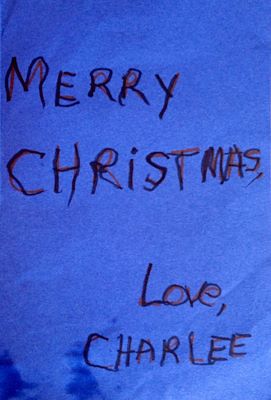 MERRY
CHRiSTMAS,
Love,
CHARLEE